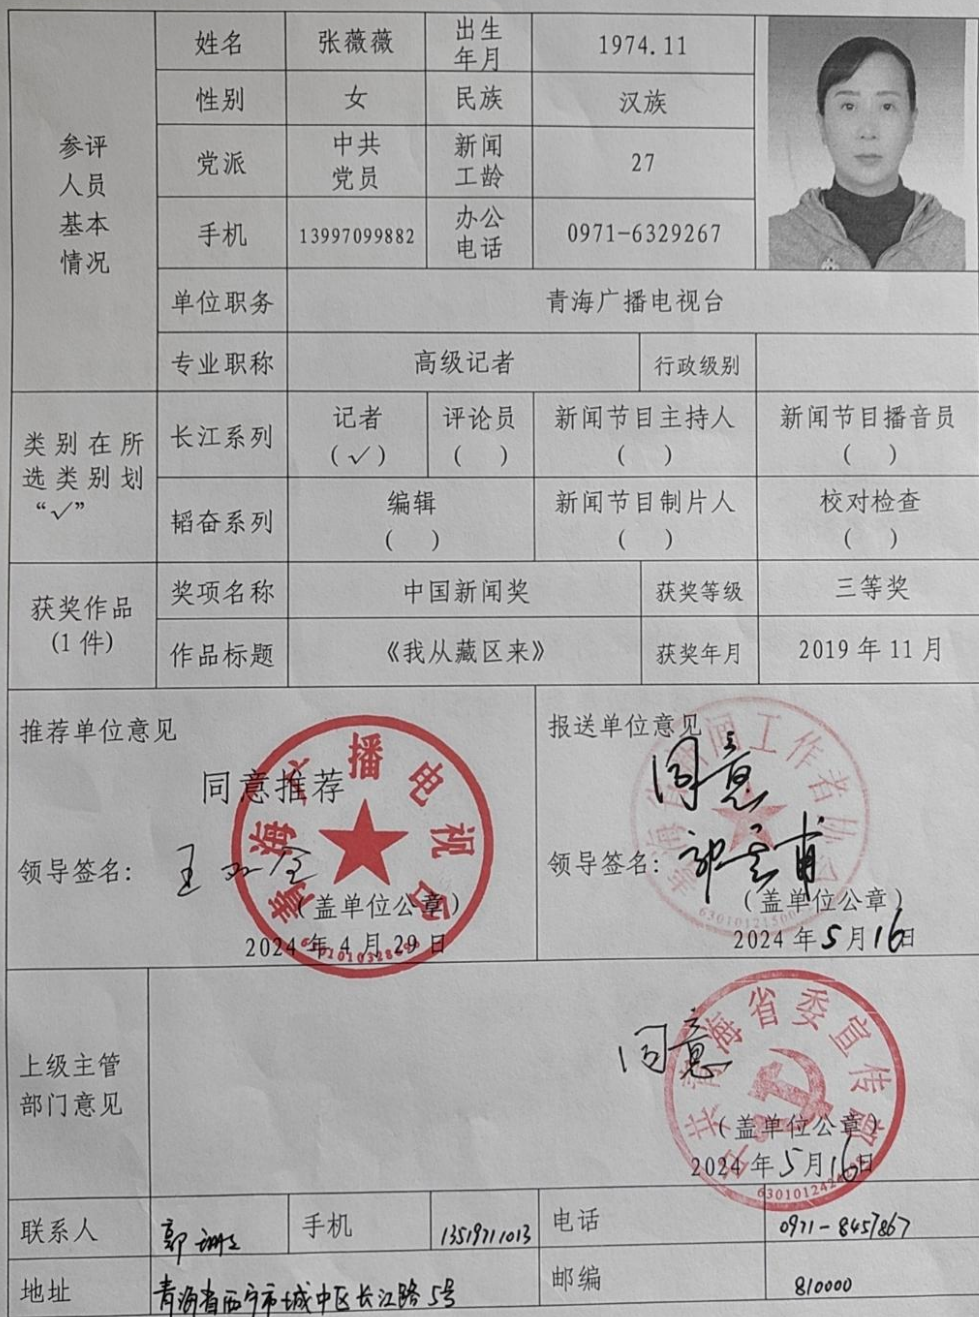 参评
人员
基本
情况
姓名 张薇薇 出生
年月 1974.11
性别 女 民族 汉族
党派 中共
党员 新闻
工龄 27
手机 13997099882 办公
电话 0971-6329267
单位职务 青海广播电视台
专业职称 高级记者 行政级别
类别在所
选类别划
“✓”
长江系列 记者
(✓) 评论员
( ) 新闻节目主持人
( ) 新闻节目播音员
( )
韬奋系列 编辑
( ) 新闻节目制片人
( ) 校对检查
( )
获奖作品
(1 件)
奖项名称 中国新闻奖 获奖等级 三等奖
作品标题 《我从藏区来》 获奖年月 2019 年 11 月
推荐单位意见
同意推荐
领导签名：
(盖单位公章)
2024 年 4 月 29 日
青海广播电视台
报送单位意见
同意
领导签名：
(盖单位公章)
2024 年 5 月 16 日
上级主管
部门意见
同意
(盖单位公章)
2024 年 5 月 16 日
中共青海省委宣传部
联系人 手机 13519711013 电话 0971-8457867
地址 青海省西宁市城中区长江路5号 邮编 810000